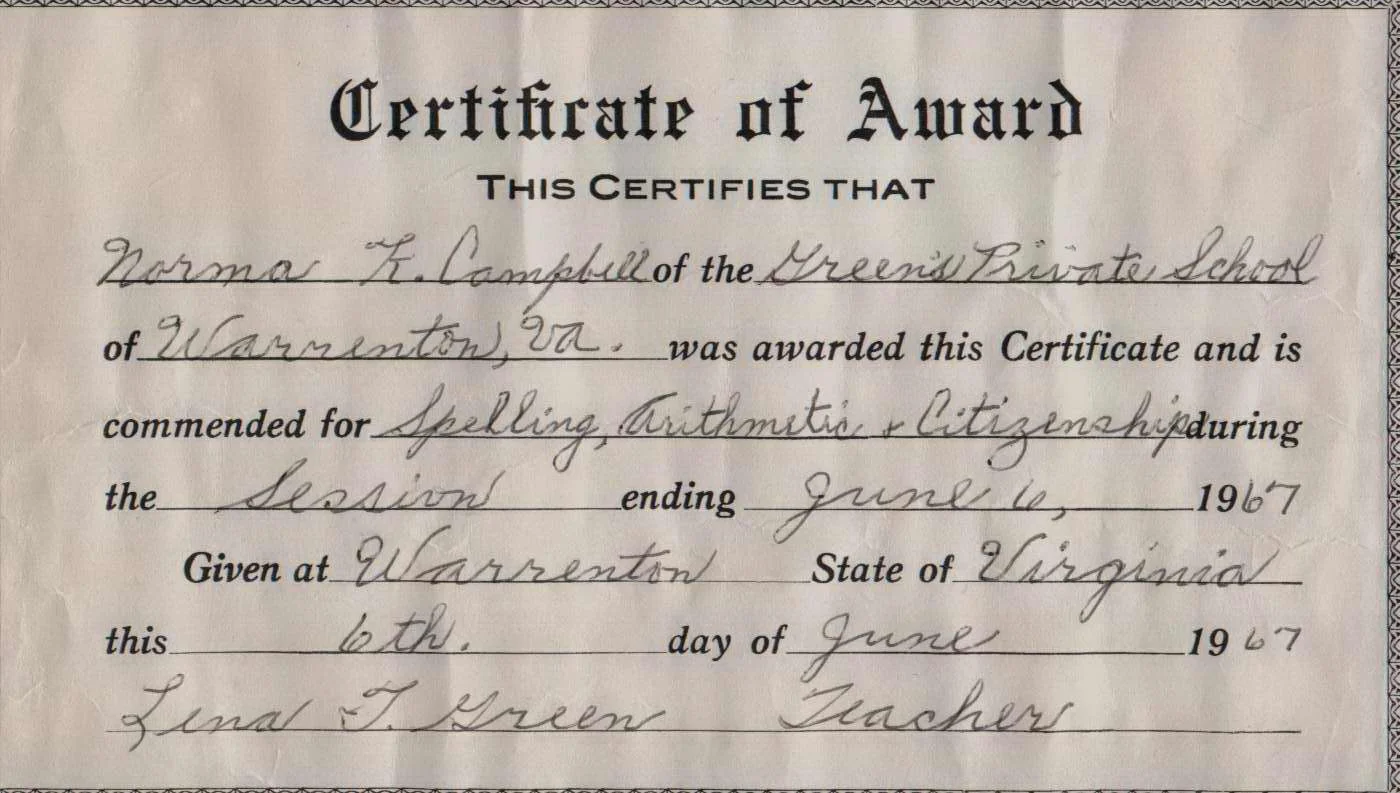 Certificate of Award
THIS CERTIFIES THAT
Norma K. Campbell of the Green's Private School
of Warrenton, Va. was awarded this Certificate and is
commended for Spelling, Arithmetic & Citizenship during
the Session ending June 6, 1967
Given at Warrenton State of Virginia
this 6th. day of June 1967
Lena T. Green Teacher